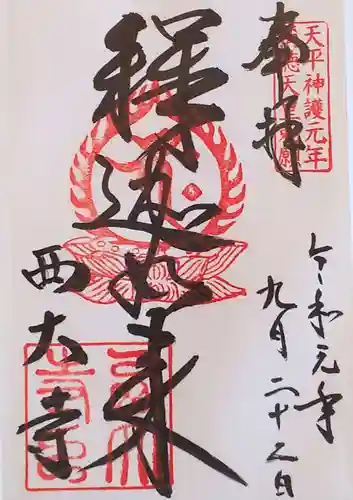 奉拝
天平神護元年
徳天皇勅願
釋迦如来
西大寺
令和元年
九月二十二日